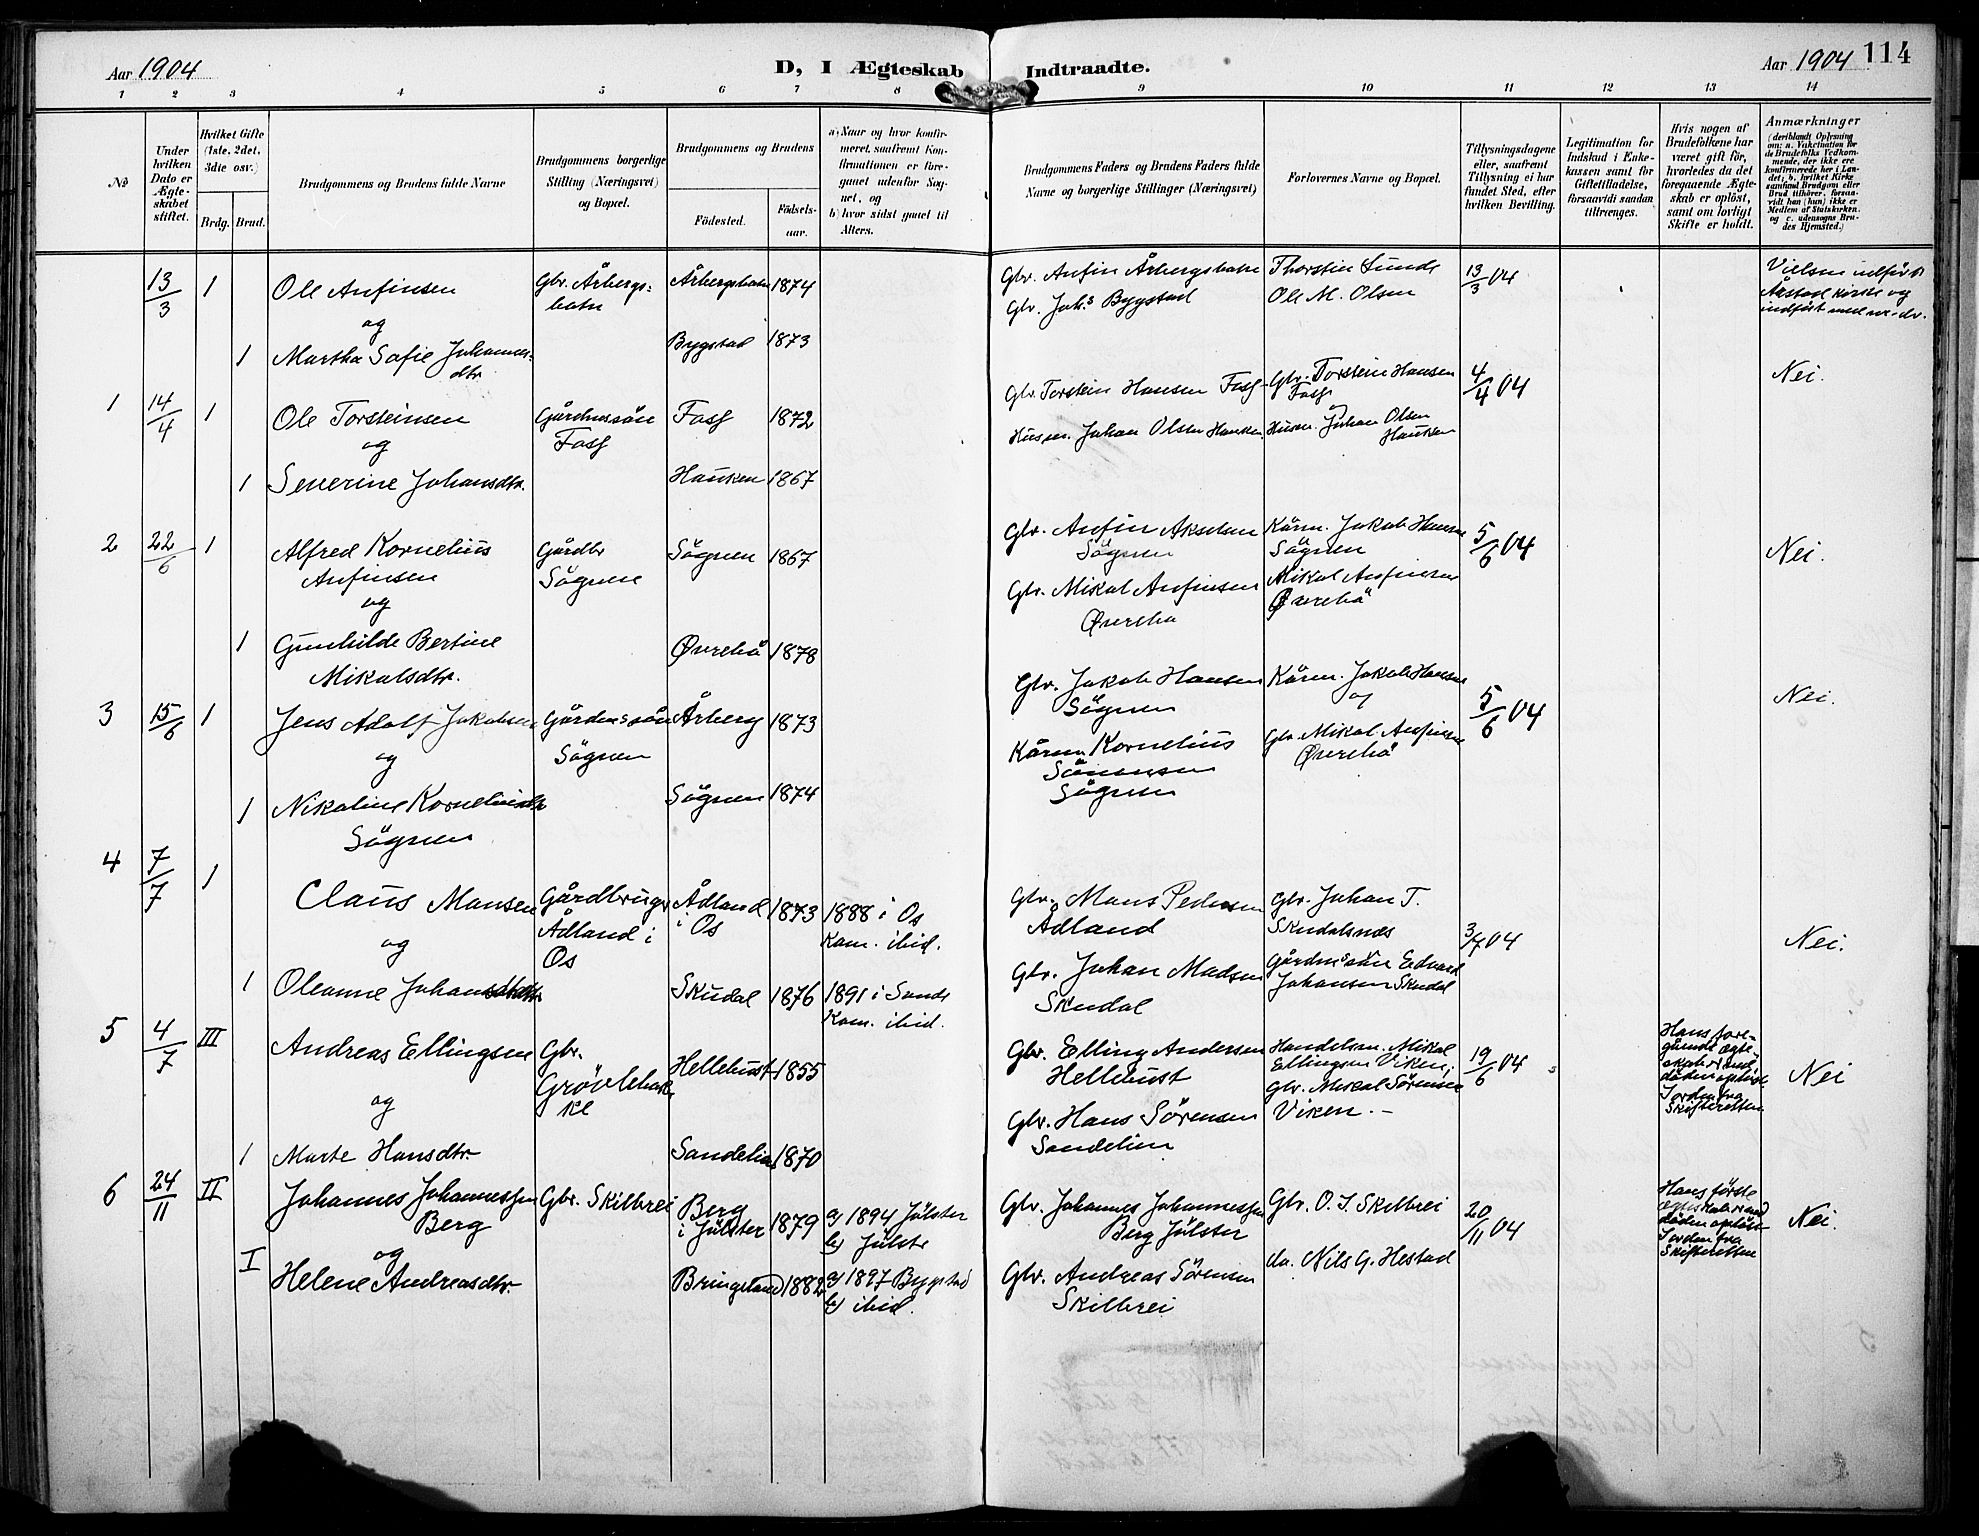 Aar 1904
D, I Ægteskab Indtraadte.
Aar 1904 114
1 2 3 4 5 6 7 8 9 10 11 12 13 14
No
Under hvilken Dato er Ægteskabet stiftet.
Hvilket Gifte (1ste, 2det, 3die osv.)
Brdg. Brud.
Brudgommens og Brudens fulde Navne
Brudgommens borgerlige Stilling (Næringsvei) og Bopæl.
Brudgommens og Brudens
Födested. Födselsaar.
a) Naar og hvor konfirmeret, saafremt Konfirmationen er foregaaet udenfor Sognet, og
b) hvor sidst gaaet til Alters.
Brudgommens Faders og Brudens Faders fulde Navne og borgerlige Stillinger (Næringsvei)
Forlovernes Navne og Bopæl.
Tillysningsdagene eller, saafremt Tillysning ei har fundet Sted, efter hvilken Bevilling.
Legitimation for Indskud i Enkekassen samt for Giftetilladelse, forsaavidt saadan tiltrænges.
Hvis nogen af Brudefolkene har været gift för, hvorledes da det foregaaende Ægteskab er oplöst, samt om lovligt Skifte er holdt.
Anmærkninger (deriblandt Oplysning om: a. Vakcination for de Brudefolks Vedkommende, der ikke ere konfirmerede her i Landet; b. hvilket Kirkesamfund Brudgom eller Brud tilhörer, forsaavidt han (hun) ikke er Medlem af Statskirken, og c. udensogns Brudes Hjemsted.)
13/3 1 Ole Anfinsen Gbr. Årbergsbotn Årbergsbotn 1874 Gbr. Anfin Årbergsbotn Thorstin Sunde 13/3 04
og Gbr. Johs Bygstad Ole M. Olsen
1 Martha Sofie Johannesdtr Bygstad 1873
1 14/4 1 Ole Torsteinsen Gårdmssön Fossf 1872 Gbr Torstein Hansen Gbr. Torstein Hansen 4/4 04 Nei.
og Husm. Johan Olsen Hauken Husm. Johan Olsen Hauken
1 Severine Johansdtr. Hauken 1867
2 22/6 1 Alfred Kornelius Anfinsen Gårdbr Sögnen Sögnen 1867 Gbr. Anfin Akselsen Sögnen Kårm. Jakob Hansen Sögnen 5/6 04 Nei.
og Gbr. Mikal Anfinsen Øvrebö Mikal Anfinsen Øvrebö
1 Gunhilde Bertine Mikalsdtr. Øvrebö 1878
3 15/6 1 Jens Adolf Jakobsen Gårdmssön Sögnen Årberg 1873 Gbr. Jakob Hansen Sögnen Kårm. Jakob Hansen og 5/6 04 Nei.
og Kårm. Kornelius Sögnen Gbr. Mikal Anfinsen Øvrebö
1 Nikoline Korneliusdtr Sögnen Sögnen 1874
4 7/7 1 Claus Monsen Gårdbruger Ådland i Os Ådland i Os 1873 1888 i Os Kom. ibid. Gbr. Mons Pedersen Ådland Gbr. Johan T. Skudalsnæs 3/7 04 Nei.
og
1 Oleanne Johansdtr Skudal 1876 1891 i Sande Kom. ibid. Gbr. Johan Madsen Skudal Gårdmssön Edvard Johansen Skudal
5 4/7 III Andreas Ellingsen Gbr. Hellebust 1855 Gbr. Elling Andersen Hellebust Handelsm. Mikal Ellingsen Viken, 19/6 04 Hans foregående ægteskab ved döden oplöst. Jorden fra Skifteretten Nei
og Gbr. Mikal Sörensen Viken. –
1 Marte Hansdtr. Sandelien 1870 Gbr. Hans Sörensen Sandelien
6 24/11 II Johannes Johannessen Berg Gbr. Skilbrei Berg i Jölster 1879 a) 1894 Jölster b) Jölster Gbr. Johannes Johannessen Berg Jölster Gbr. O. J. Skilbrei 20/11 04 Hans förste ægteskab ved döden oplöst. Jorden fra Skifteretten Nei.
og
I Helene Andreasdtr. Bringeland 1882 a) 1897 Bygstad b) ibid. Gbr. Andreas Sörensen Skilbrei do. Nils G. Hestad